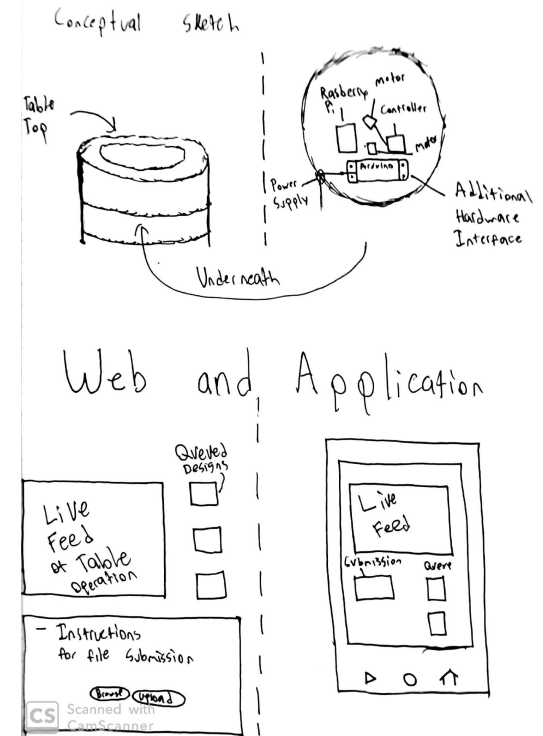 Conceptual Sketch
Table
Top
Rasberry
Pi
motor
Controller
motor
Arduino
Power
Supply
Additional
Hardware
Interface
Underneath
Web and Application
Queued
Designs
Live
Feed
of Table
operation
- Instructions
for file submission
Browse
upload
Live
Feed
Submission
Queue
CS Scanned with
CamScanner